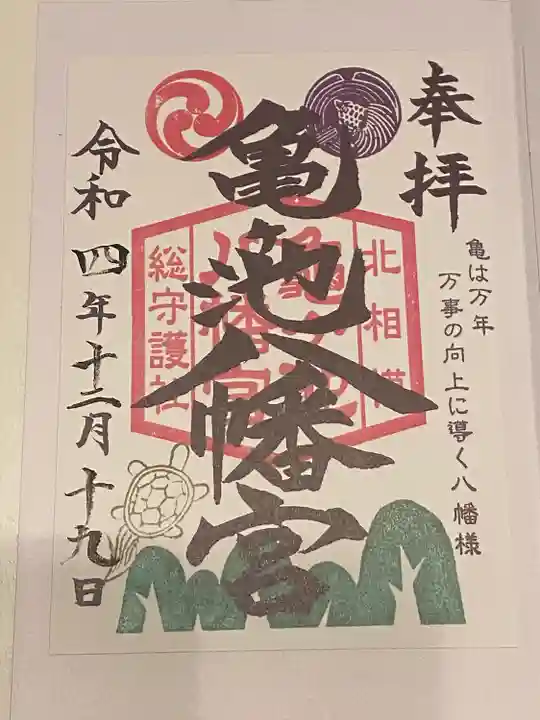 奉拝
亀は万年
万事の向上に導く八幡様
亀ヶ池八幡宮
北相模
亀ヶ池
八幡宮
総守護社
令和四年十二月十九日